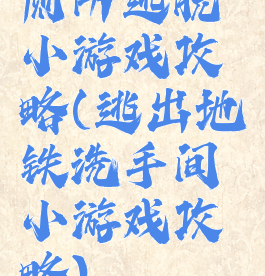 厕所逃脱
小游戏攻
略(逃出地
铁洗手间
小游戏攻
略)